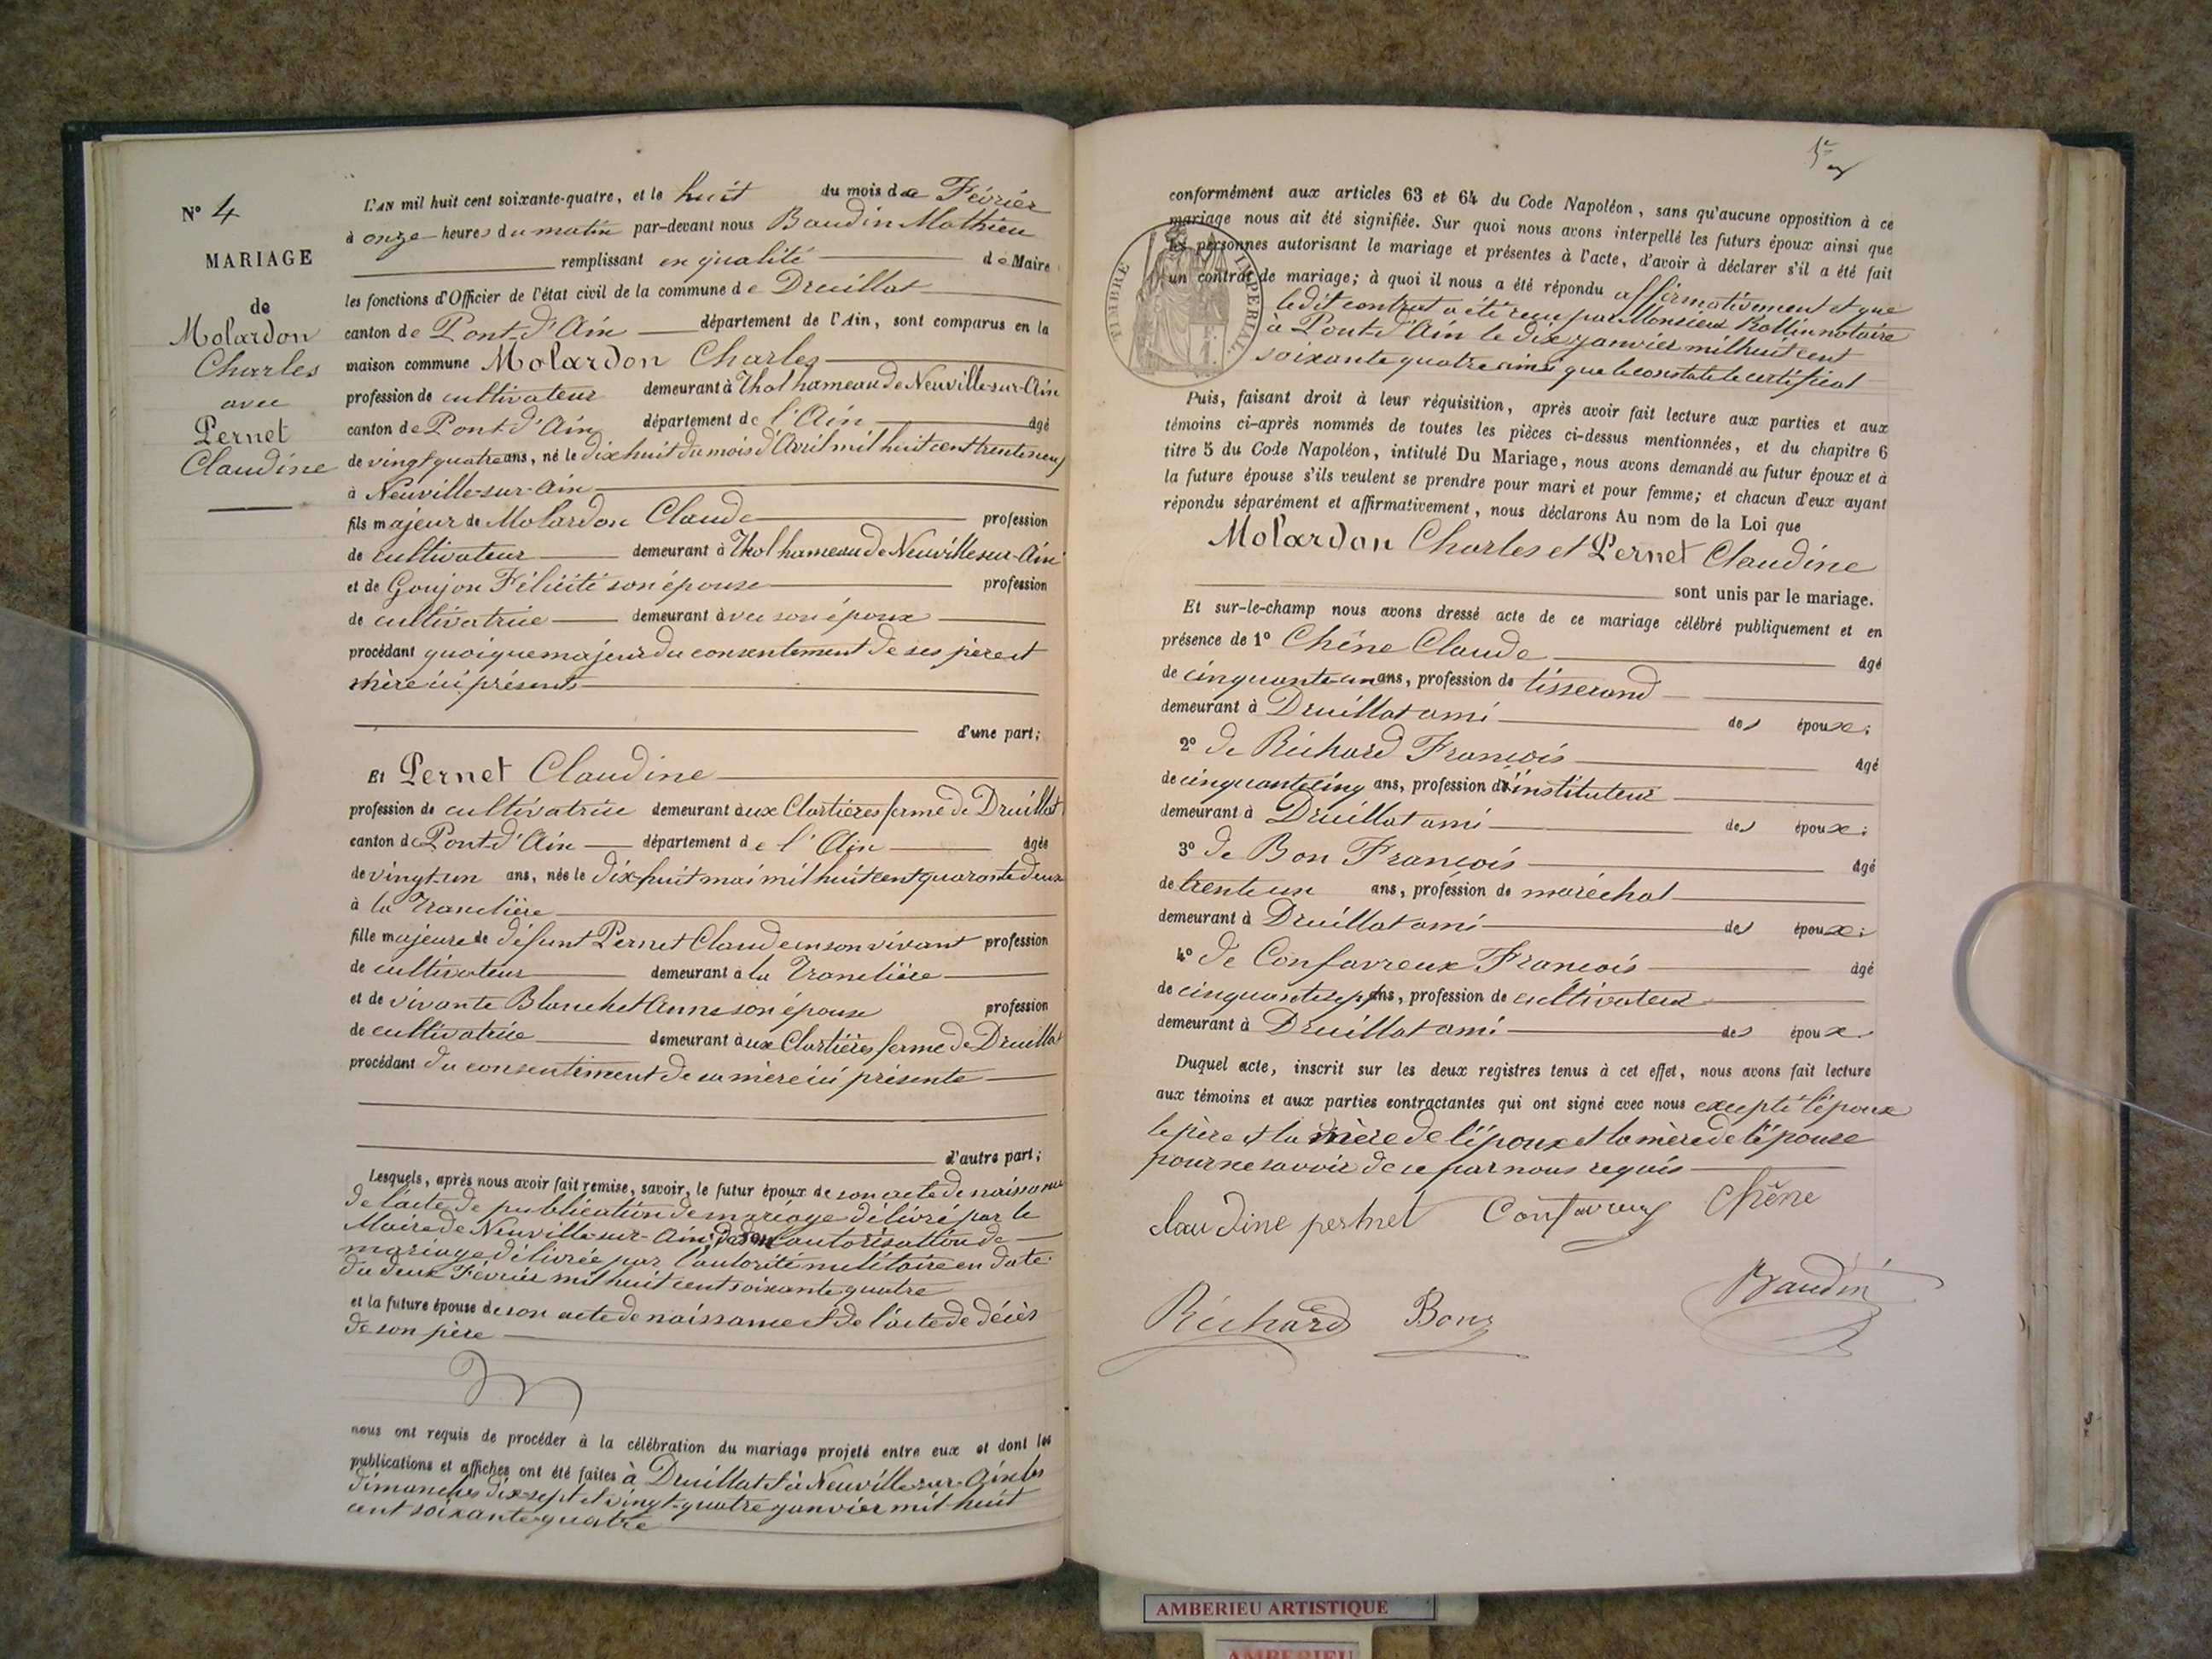 N° 4
MARIAGE
de
Molardon
Charles
avec
Pernet
Claudine
L'AN mil huit cent soixante-quatre, et le huit du mois de Février
à onze heures du matin par-devant nous Baudin Mathieu
remplissant en qualité de Maire
les fonctions d'Officier de l'état civil de la commune de Druillat
canton de Pont-d'Ain département de l'Ain, sont comparus en la
maison commune Molardon Charles
profession de cultivateur demeurant à Thol hameau de Neuville-sur-Ain
canton de Pont d'Ain département de l'Ain âgé
de vingt quatre ans, né le dix huit du mois d'Avril mil huit cent trente neuf
à Neuville-sur-Ain
fils majeur de Molardon Claude profession
de cultivateur demeurant à Thol hameau de Neuville sur-Ain
et de Goujon Félicité son épouse profession
de cultivatrice demeurant avec son époux
procédant quoique majeur du consentement de ses père et
mère ici présents
d'une part;
Et Pernet Claudine
profession de cultivatrice demeurant aux Clartières ferme de Druillat
canton de Pont d'Ain département de l'Ain âgée
de vingt-un ans, née le dix-huit mai mil huit cent quarante deux
à la Tranclière
fille majeure de défunt Pernet Claude en son vivant profession
de cultivateur demeurant à la Tranclière
et de vivante Blanchet Anne son épouse profession
de cultivatrice demeurant aux Clartières ferme de Druillat
procédant du consentement de sa mère ici présente
d'autre part;
Lesquels, après nous avoir fait remise, savoir, le futur époux de son acte de naissance
de l'acte de publication de mariage délivré par le
Maire de Neuville-sur-Ain, de son autorisation de
mariage délivrée par l'autorité militaire en date
du deux Février mil huit cent soixante quatre
et la future épouse de son acte de naissance et de l'acte de décès
de son père
nous ont requis de procéder à la célébration du mariage projeté entre eux et dont les
publications et affiches ont été faites à Druillat et à Neuville-sur-Ain les
dimanches dix-sept et vingt-quatre janvier mil huit
cent soixante quatre
conformément aux articles 63 et 64 du Code Napoléon, sans qu'aucune opposition à ce
mariage nous ait été signifiée. Sur quoi nous avons interpellé les futurs époux ainsi que
les personnes autorisant le mariage et présentes à l'acte, d'avoir à déclarer s'il a été fait
un contrat de mariage; à quoi il nous a été répondu affirmativement et que
le dit contrat a été reçu par Monsieur Rollin notaire
à Pont-d'Ain le dix janvier mil huit cent
soixante quatre ainsi que le constate le certificat
TIMBRE IMPERIAL.
Puis, faisant droit à leur réquisition, après avoir fait lecture aux parties et aux
témoins ci-après nommés de toutes les pièces ci-dessus mentionnées, et du chapitre 6
titre 5 du Code Napoléon, intitulé Du Mariage, nous avons demandé au futur époux et à
la future épouse s'ils veulent se prendre pour mari et pour femme; et chacun d'eux ayant
répondu séparément et affirmativement, nous déclarons Au nom de la Loi que
Molardon Charles et Pernet Claudine
sont unis par le mariage.
Et sur-le-champ nous avons dressé acte de ce mariage célébré publiquement et en
présence de 1° Chêne Claude âgé
de cinquante un ans, profession de tisserand
demeurant à Druillat ami des époux;
2° de Richard François âgé
de cinquante cinq ans, profession d'instituteur
demeurant à Druillat ami des époux;
3° de Bon François âgé
de trente un ans, profession de maréchal
demeurant à Druillat ami des époux;
4° de Confavreux François âgé
de cinquante sept ans, profession de cultivateur
demeurant à Druillat ami des époux.
Duquel acte, inscrit sur les deux registres tenus à cet effet, nous avons fait lecture
aux témoins et aux parties contractantes qui ont signé avec nous excepté l'époux
le père et la mère de l'époux et la mère de l'épouse
pour ne savoir de ce par nous requis
Claudine pernet Confavreux Chêne
Baudin
Richard Bon
AMBERIEU ARTISTIQUE
AMBERIEU